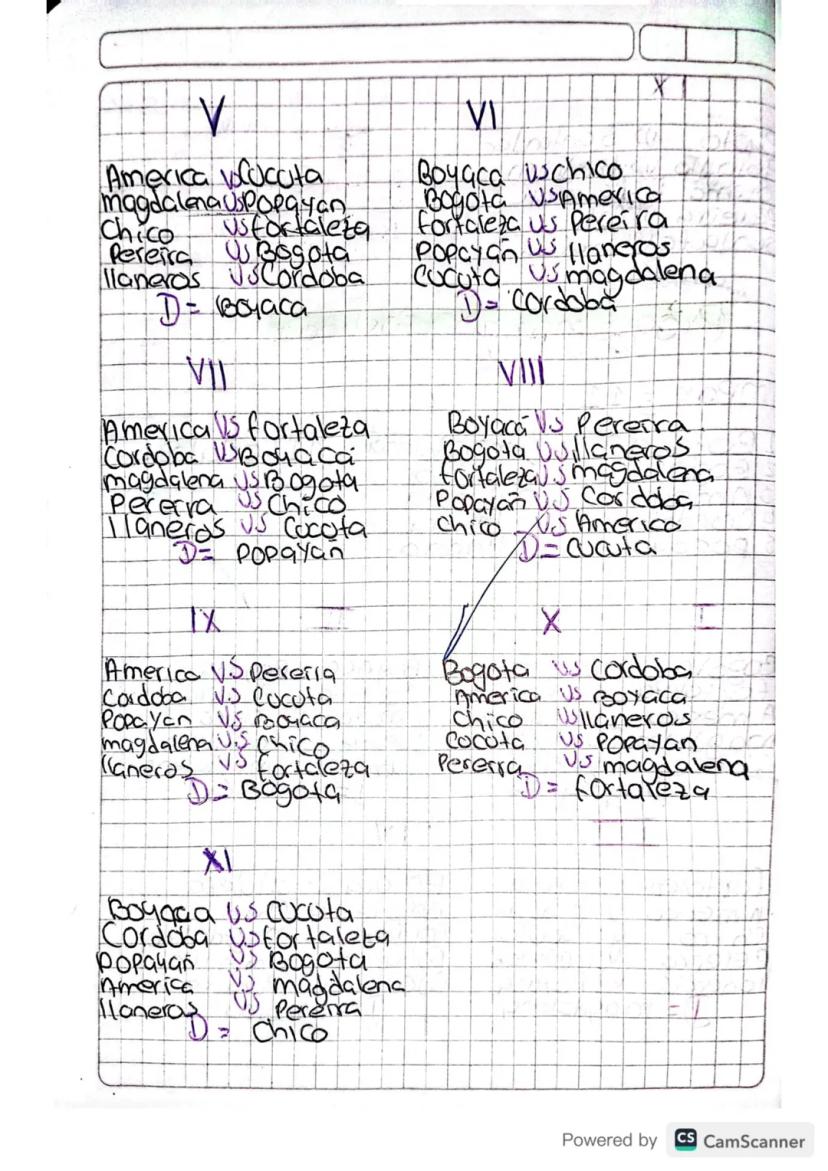 V
America vs Cucuta
magdalena vs Popayan
Chico vs fortaleza
Pereira vs Bogota
llaneros vs Cordoba
D = Boyaca
VI
Boyaca vs chico
Bogota vs America
fortaleza vs Pereira
Popayan vs llaneros
Cucuta vs magdalena
D = Cordoba
VII
America vs fortaleza
Cordoba vs Boyaca
magdalena vs Bogota
Pereira vs Chico
llaneros vs Cucota
D = Popayan
VIII
Boyaca vs Pereira
Bogota vs llaneros
fortaleza vs magdalena
Popayan vs Cordoba
Chico vs America
D = Cucuta
IX
America vs Pereria
Cordoba vs Cucota
Popayan vs Boyaca
magdalena vs Chico
llaneros vs fortaleza
D = Bogota
X
Bogota vs Cordoba
America vs Boyaca
Chico vs llaneros
Cocota vs Popayan
Pereira vs magdalena
D = fortaleza
XI
Boyaca vs Cucuta
Cordoba vs fortaleza
Popayan vs Bogota
America vs magdalena
llaneros vs Pereira
D = Chico
Powered by CS CamScanner